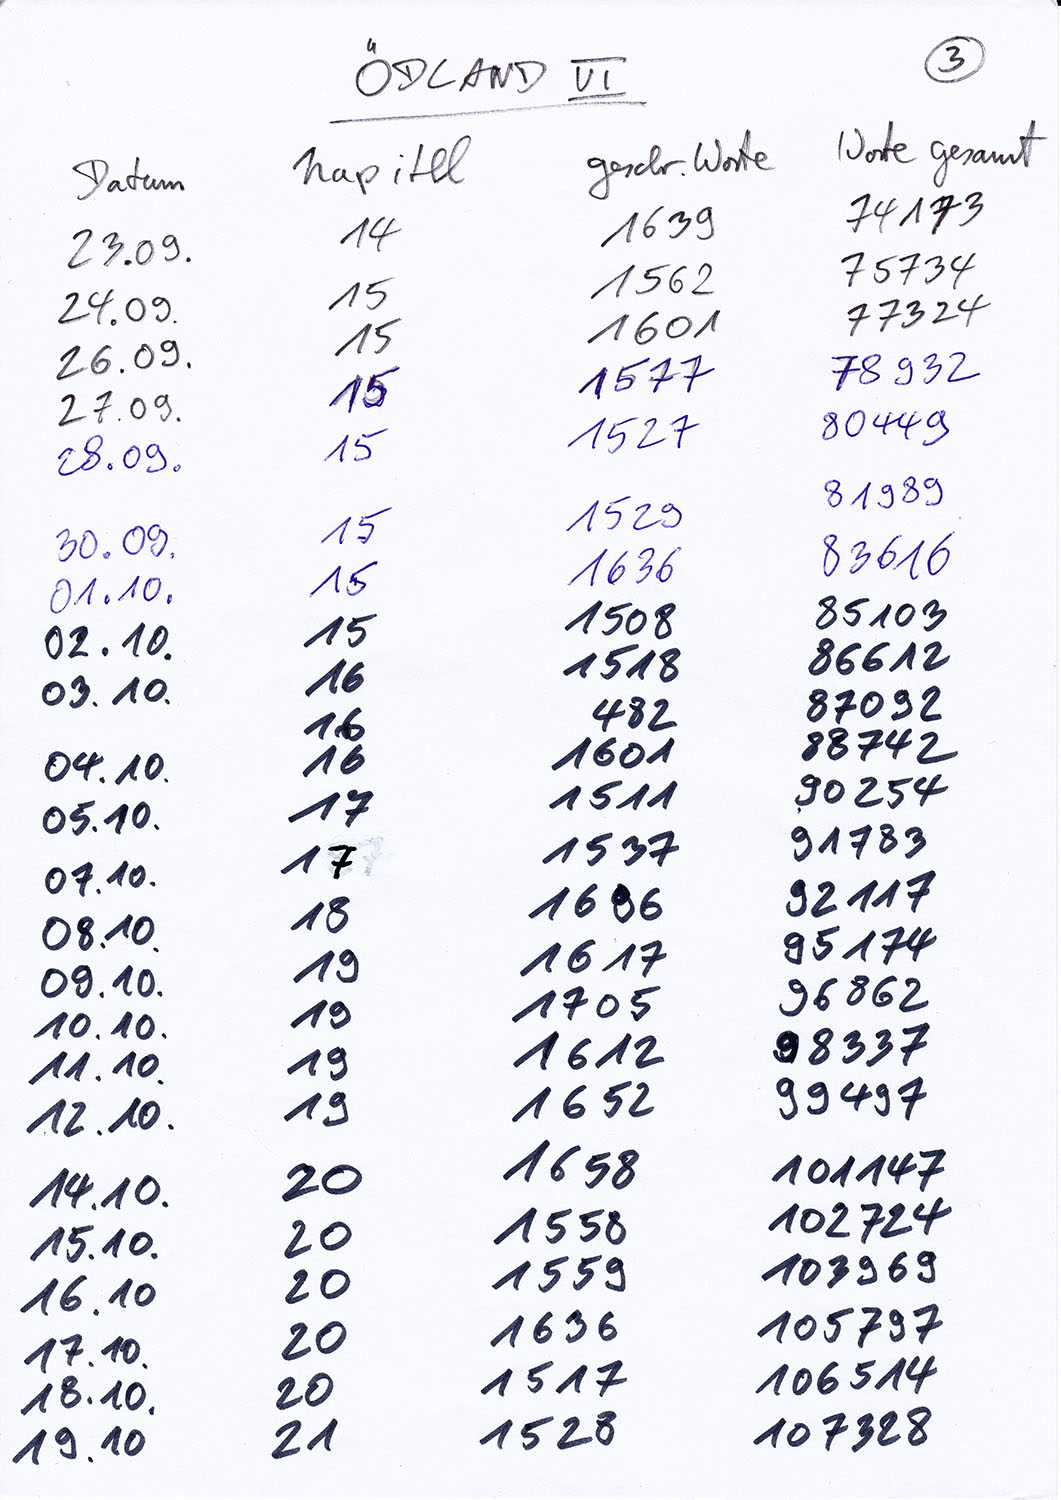 ÖDLAND VI
3
Datum Kapitel geschr. Worte Worte gesamt
23.09. 14 1639 74173
24.09. 15 1562 75734
26.09. 15 1601 77324
27.09. 15 1577 78932
28.09. 15 1527 80449
30.09. 15 1529 81989
01.10. 15 1636 83616
02.10. 15 1508 85103
03.10. 16 1518 86612
16 482 87092
04.10. 16 1601 88742
05.10. 17 1511 90254
07.10. 17 1537 91783
08.10. 18 1696 92117
09.10. 19 1617 95174
10.10. 19 1705 96862
11.10. 19 1612 98337
12.10. 19 1652 99497
14.10. 20 1658 101147
15.10. 20 1558 102724
16.10 20 1559 103969
17.10. 20 1636 105797
18.10. 20 1517 106514
19.10 21 1528 107328